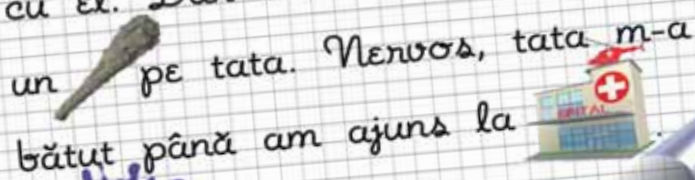 cu el.
un pe tata. Nervos, tata m-a
bătut până am ajuns la